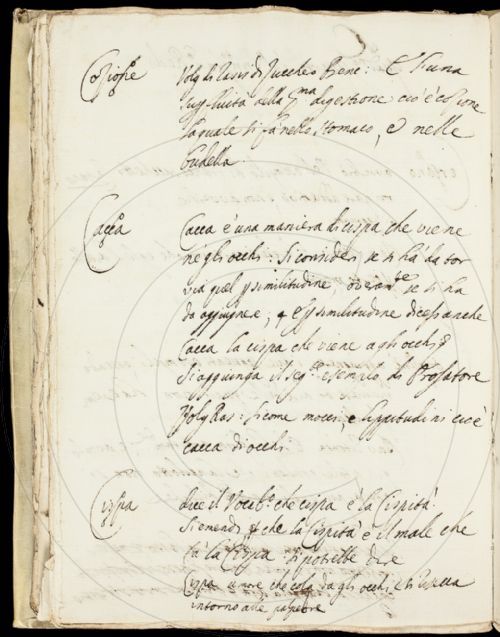 Cozione
Volg. di Rasis di Zucchero Bene: È l'una
superfluità della pma digestione cioè cozione
la quale si fà nello stomaco, e nelle
budella.
Cacca
Cacca è una maniera di cispa che viene
ne gli occhi: si consideri se si hà da tor
via quel p similitudine se si ha
da aggiugnere, p similitudine dicesi anche
Cacca la cispa che viene agli occhi, e
si aggiunga il seg.te esempio di Prosatore
Volg Ras: sicome mocci, e lippitudini cioè
cacca di occhi.
Cispa
dice il Vocab.o che cispa è la Cispità
si emendi che la Cispità è il male che
fà la Cispa si potrebbe dire
Cispa umore che cola dagli occhi, e si secca
intorno alle palpebre